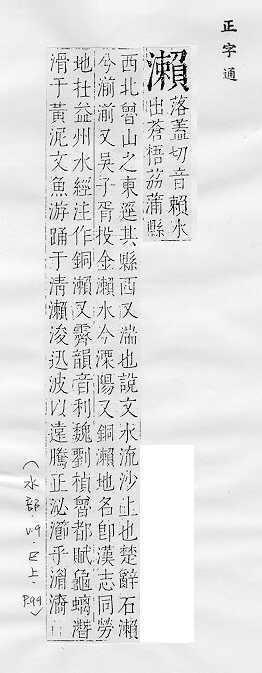 正字通
瀨
落蓋切音賴水
出蒼梧荔蒲縣
西北魯山之東逕其縣西又湍也說文水流沙上也楚辭石瀨
兮淺淺又吳子胥投金瀨水今溧陽又銅瀨地名卽漢志同勞
地在益州水經注作銅瀨又霽韻音利魏劉楨魯都賦龜螭潛
滑于黃泥文魚游踊于清瀨浚迅波以遠騰正泌瀄乎
(水部.V.9.E上.P.99)